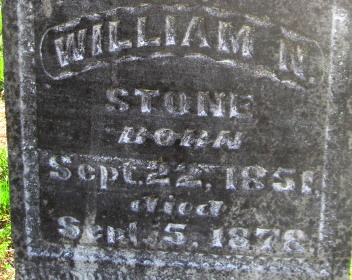 WILLIAM N.
STONE
BORN
Sept. 22, 1851,
died
Sept. 5, 1878